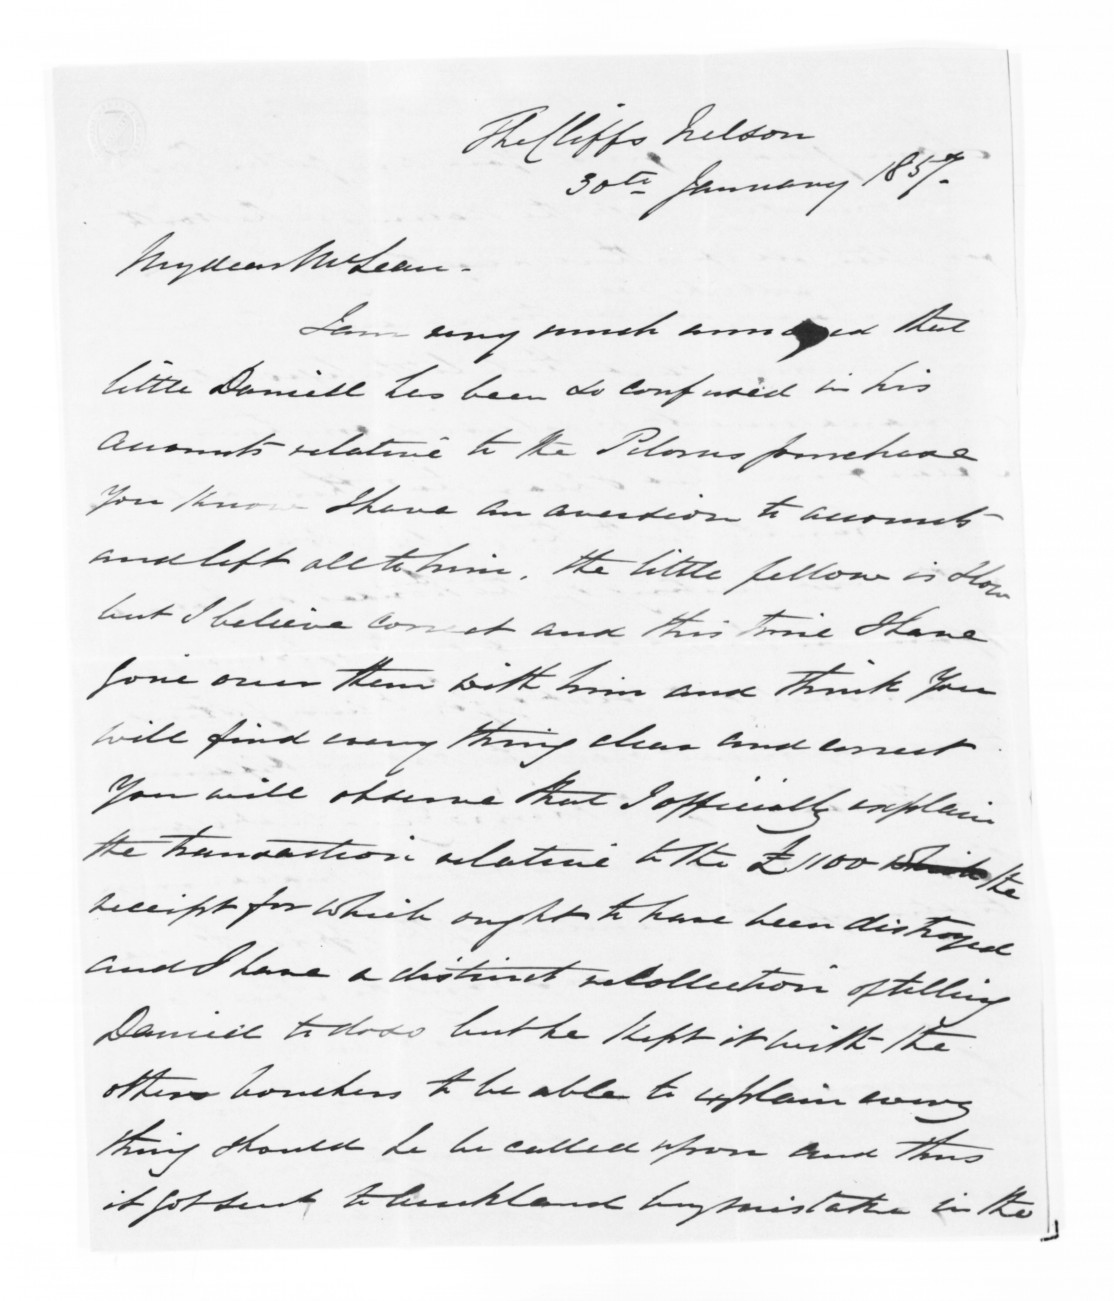 The Cliffs Nelson
30th January 1857.
My dear McLean.
I am very much annoyed that
little Daniell has been so confused in his
accounts relative to the Pelorus purchase
You know I have an aversion to accounts
and left all to him. The little fellow is slow
but I believe correct and this time I have
gone over them with him and think You
will find every thing clear and correct
You will observe that I officially explain
the transaction relative to the £1100 which the
receipt for which ought to have been distroyed
and I have a distinct recollection of telling
Daniell to do so but he kept it with the
others vouchers to be able to explain every
thing should he be called upon and thus
it got sent to Auckland by mistake in the